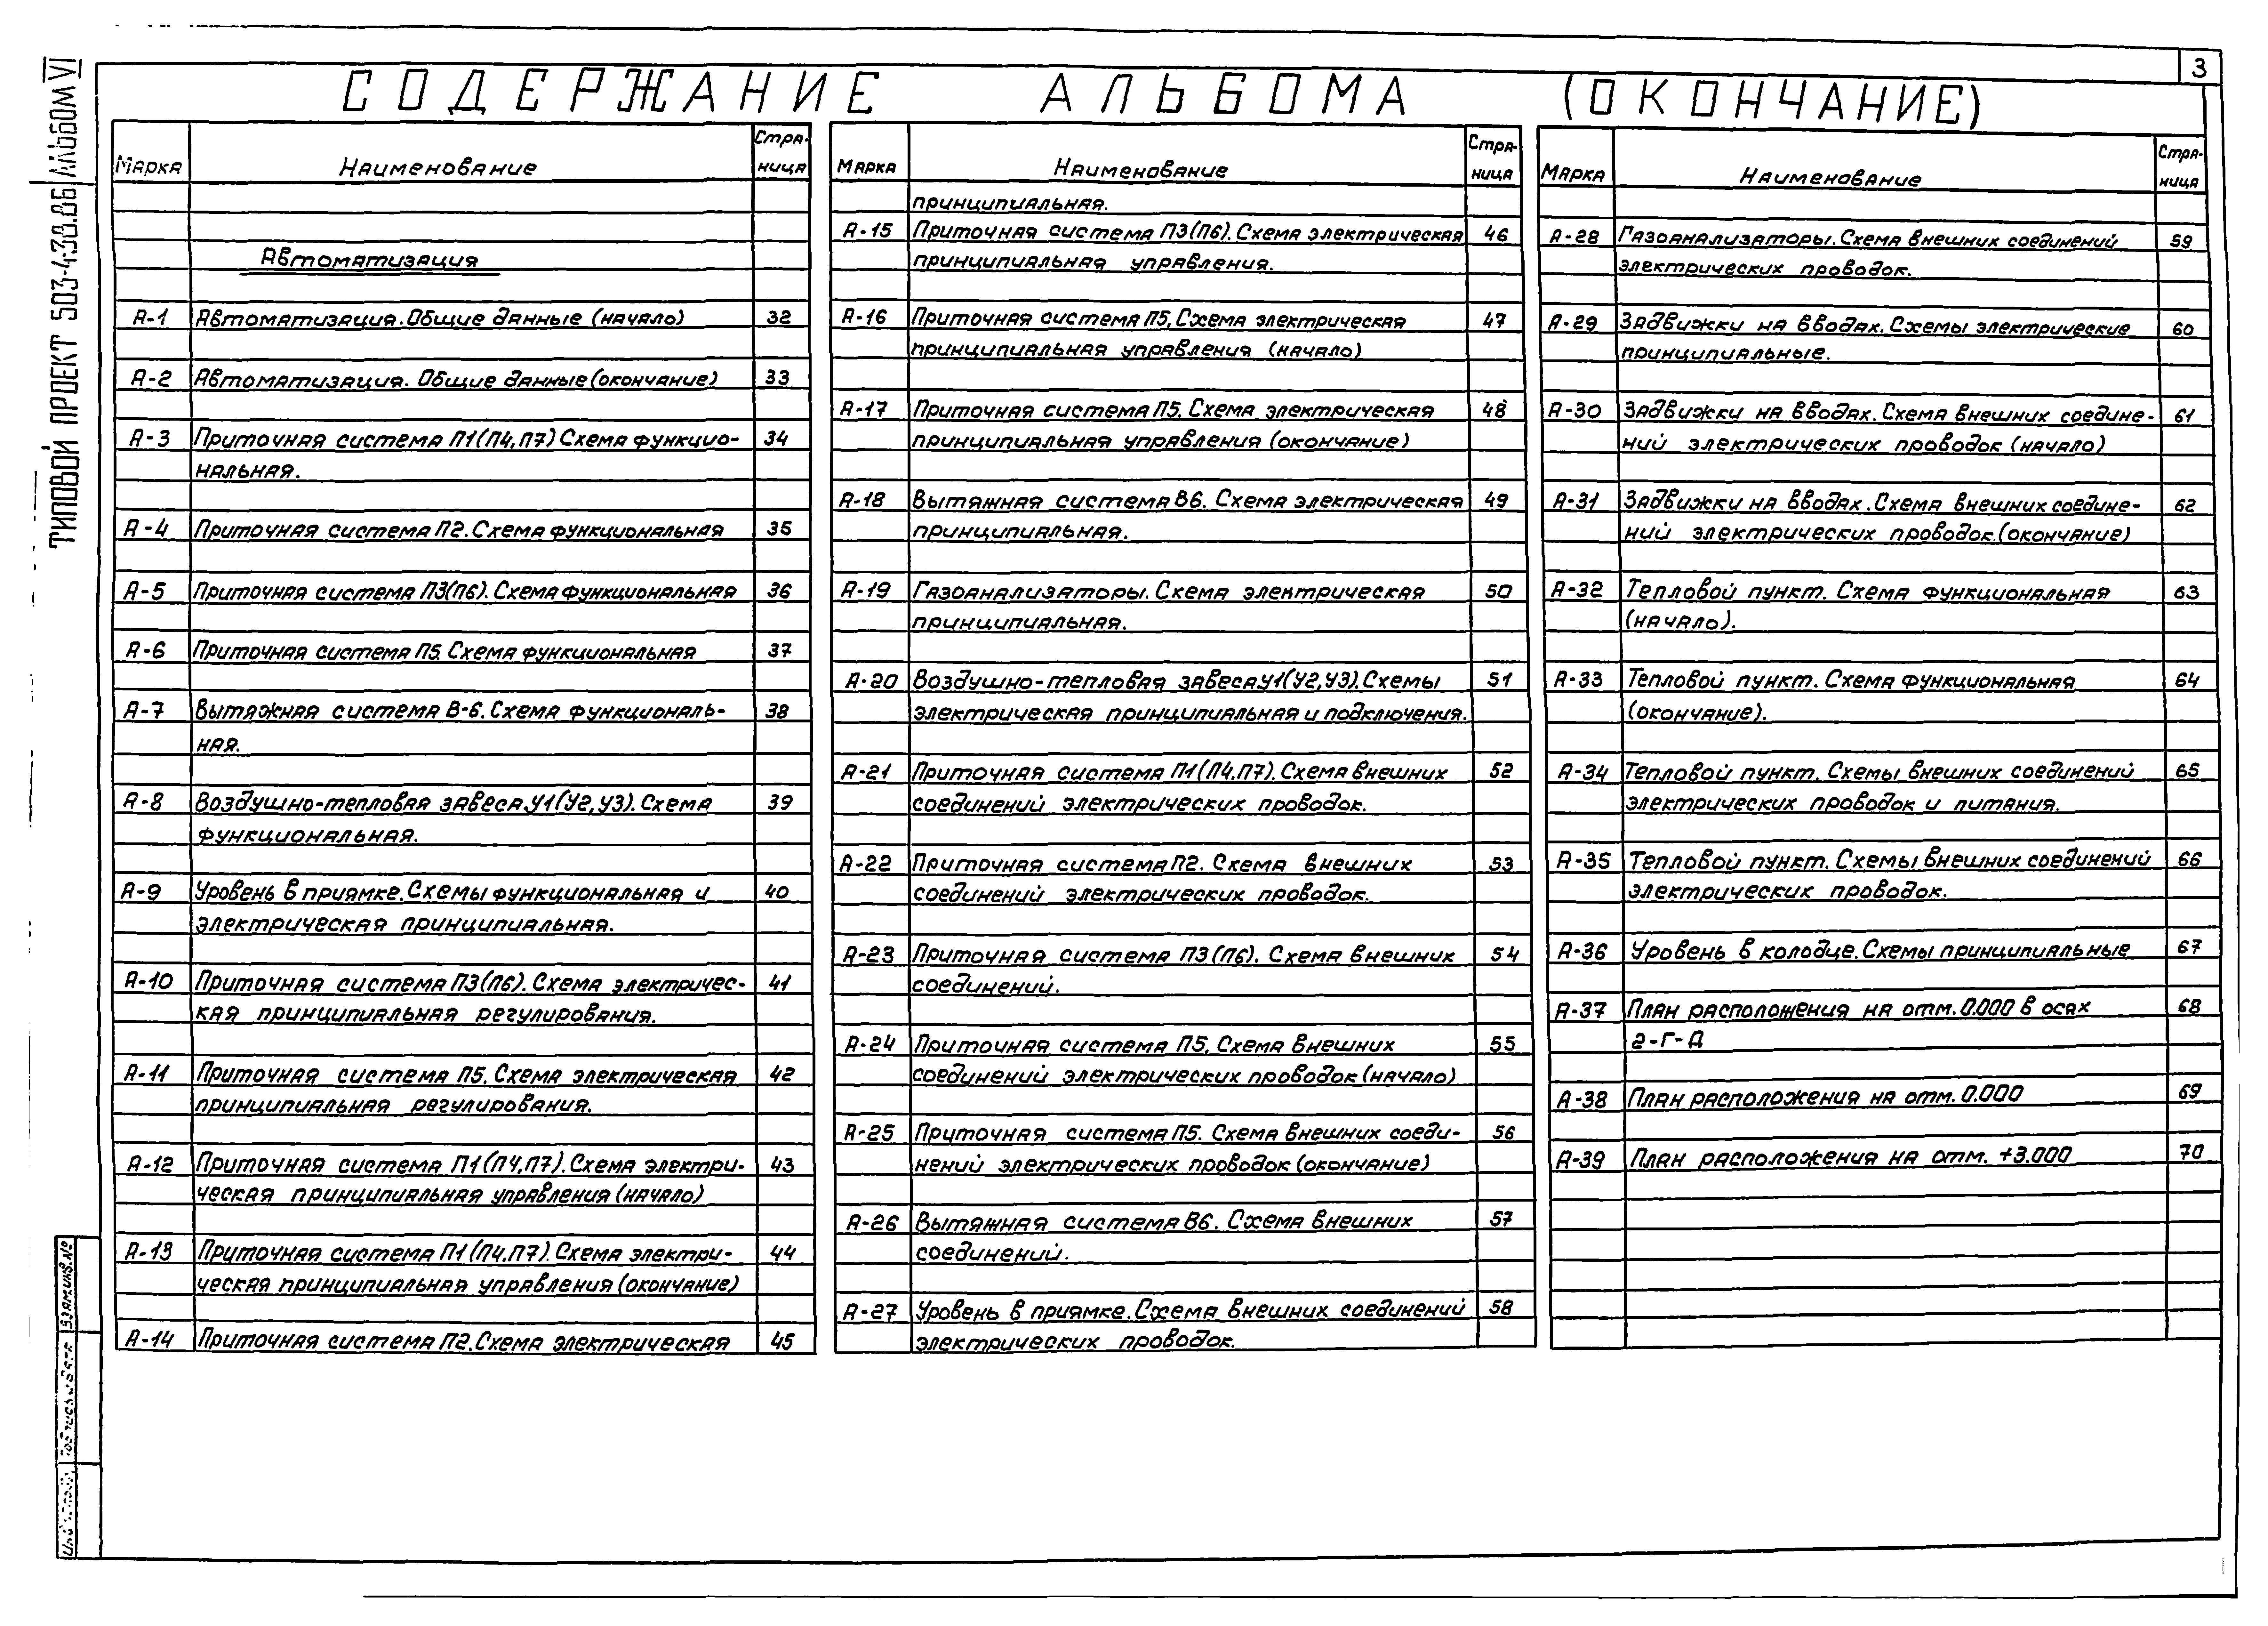 3
СОДЕРЖАНИЕ АЛЬБОМА (ОКОНЧАНИЕ)
ТИПОВОЙ ПРОЕКТ 503-4.38.86 АЛЬБОМ VI
Марка Наименование Стра-
ница
Автоматизация
А-1 Автоматизация. Общие данные (начало) 32
А-2 Автоматизация. Общие данные (окончание) 33
А-3 Приточная система П1(П4,П7) Схема функцио- 34
нальная.
А-4 Приточная система П2. Схема функциональная 35
А-5 Приточная система П3(П6). Схема функциональная 36
А-6 Приточная система П5. Схема функциональная 37
А-7 Вытяжная система В-6. Схема функциональ- 38
ная.
А-8 Воздушно-тепловая завеса У1(У2,У3). Схема 39
функциональная.
А-9 Уровень в приямке. Схемы функциональная и 40
электрическая принципиальная.
А-10 Приточная система П3(П6). Схема электричес- 41
кая принципиальная регулирования.
А-11 Приточная система П5. Схема электрическая 42
принципиальная регулирования.
А-12 Приточная система П1(П4,П7). Схема электри- 43
ческая принципиальная управления (начало)
А-13 Приточная система П1(П4,П7). Схема электри- 44
ческая принципиальная управления (окончание)
А-14 Приточная система П2. Схема электрическая 45
Марка Наименование Стра-
ница
принципиальная.
А-15 Приточная система П3(П6). Схема электрическая 46
принципиальная управления.
А-16 Приточная система П5. Схема электрическая 47
принципиальная управления (начало)
А-17 Приточная система П5. Схема электрическая 48
принципиальная управления (окончание)
А-18 Вытяжная система В6. Схема электрическая 49
принципиальная.
А-19 Газоанализаторы. Схема электрическая 50
принципиальная.
А-20 Воздушно-тепловая завеса У1(У2,У3). Схемы 51
электрическая принципиальная и подключения.
А-21 Приточная система П1(П4,П7). Схема внешних 52
соединений электрических проводок.
А-22 Приточная система П2. Схема внешних 53
соединений электрических проводок.
А-23 Приточная система П3(П6). Схема внешних 54
соединений.
А-24 Приточная система П5. Схема внешних 55
соединений электрических проводок (начало)
А-25 Приточная система П5. Схема внешних соеди- 56
нений электрических проводок (окончание)
А-26 Вытяжная система В6. Схема внешних 57
соединений.
А-27 Уровень в приямке. Схема внешних соединений 58
электрических проводок.
Марка Наименование Стра-
ница
А-28 Газоанализаторы. Схема внешних соединений 59
электрических проводок.
А-29 Задвижки на вводах. Схемы электрические 60
принципиальные.
А-30 Задвижки на вводах. Схема внешних соедине- 61
ний электрических проводок (начало)
А-31 Задвижки на вводах. Схема внешних соедине- 62
ний электрических проводок. (окончание)
А-32 Тепловой пункт. Схема функциональная 63
(начало).
А-33 Тепловой пункт. Схема функциональная 64
(окончание).
А-34 Тепловой пункт. Схемы внешних соединений 65
электрических проводок и питания.
А-35 Тепловой пункт. Схемы внешних соединений 66
электрических проводок.
А-36 Уровень в колодце. Схемы принципиальные 67
А-37 План расположения на отм. 0.000 в осях 68
2-Г-Д
А-38 План расположения на отм. 0.000 69
А-39 План расположения на отм. +3.000 70
Взам.инв.№